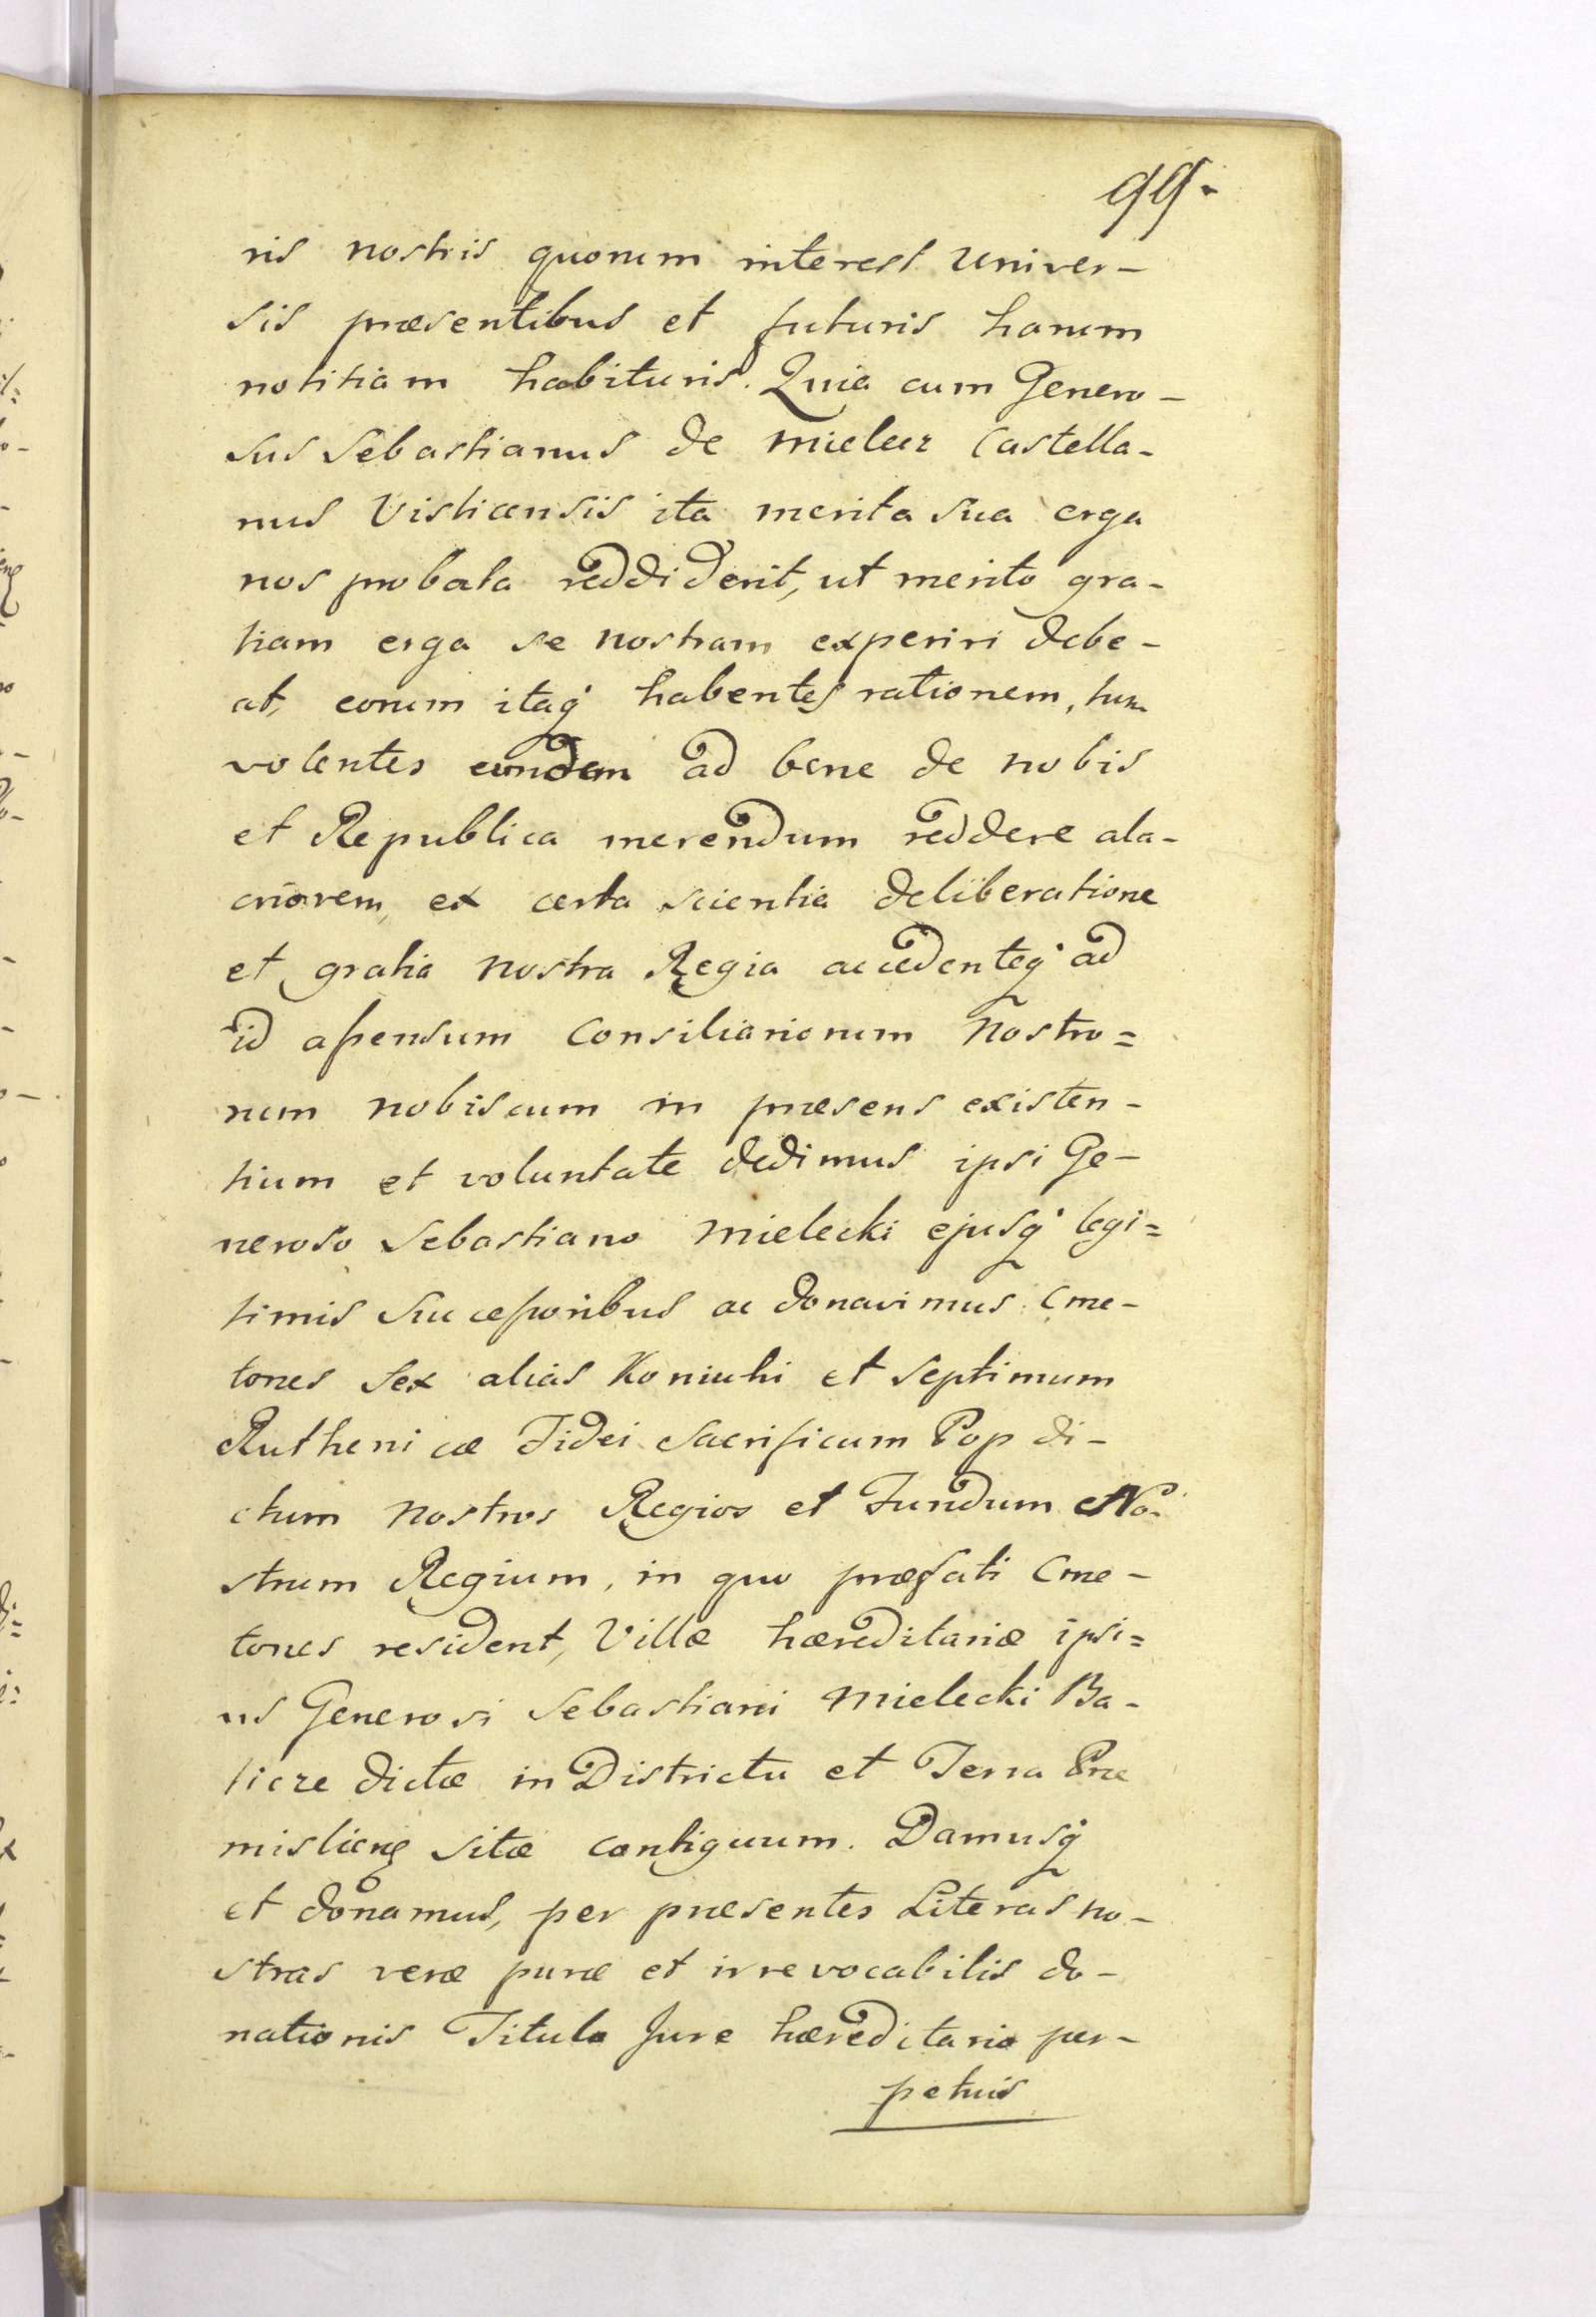 99.
ris nostris quorum interest univer-
sis præsentibus et futuris harum
notitiam habituris. Quia cum Genero-
sus Sebastianus de Mielecz Castella-
nus Visticensis ita merita sua erga
nos probata reddiderit, ut merito gra-
tiam erga se nostram experiri debe-
at, eorum itaq' habentes rationem, tum
volentes eundem ad bene de nobis
et Republica merendum reddere ala-
criorem, ex certa scientia deliberatione
et gratia nostra Regia accedenteq' ad
id aßensum Consiliariorum Nostro=
rum nobiscum in præsens existen-
tium et voluntate dedimus ipsi Ge-
neroso Sebastiano Mielecki ejusq' legi=
timis Succeßoribus ac donavimus Cme-
tones sex alias Koniuhi et septimum
Ruthenicæ Fidei Sacrificum Pop di-
ctum Nostros Regios et Fundum No-
strum Regium, in quo præfati Cme-
tones resident, Villæ hæreditariæ ipsi=
us Generosi Sebastiani Mielecki Ba-
ticze dictæ in Districtu et Terra Pre
misliens sitæ contiguum. Damusq'
et donamus, per præsentes Literas no-
stras veræ puræ et irrevocabilis do-
nationis Titulo Jure hæreditario per-
petuis